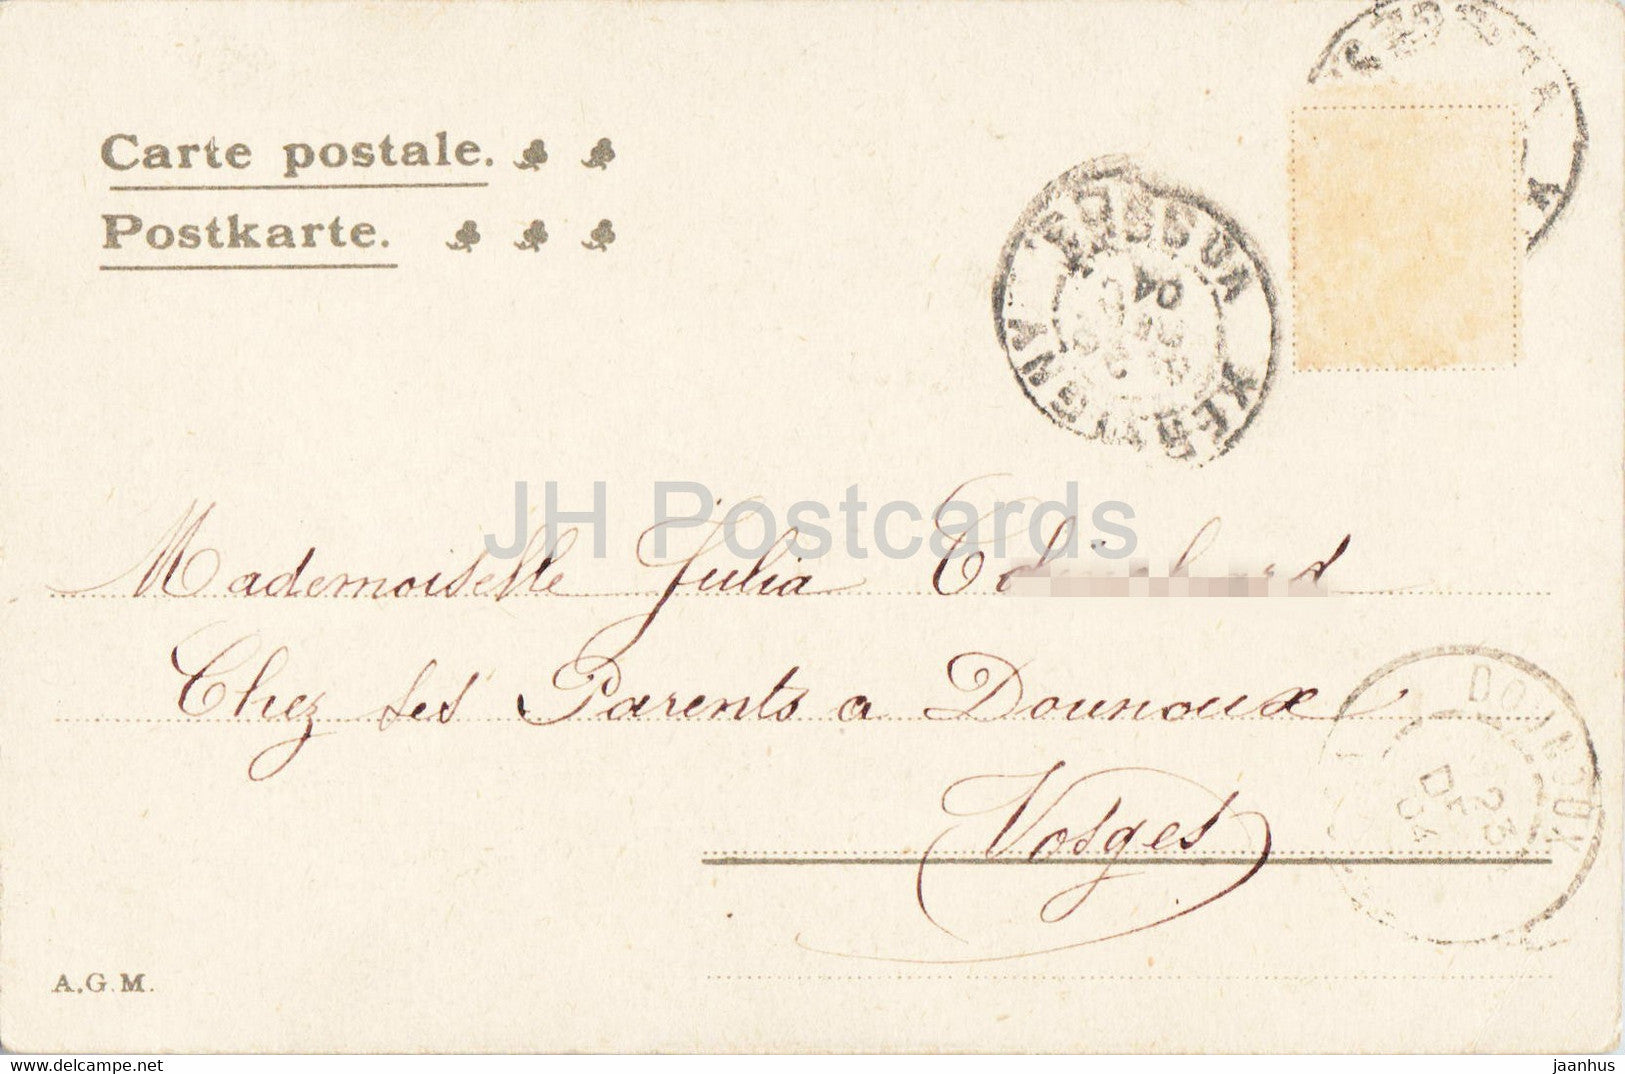 Carte postale.
Postkarte.
XERTIGNY
VOSGES
04
JH Postcards
Mademoiselle Julia
Chez ses Parents a Dounoux
Vosges
DOUNOUX
23
DEC
04
A.G.M.
www.delcampe.net
jaanhus